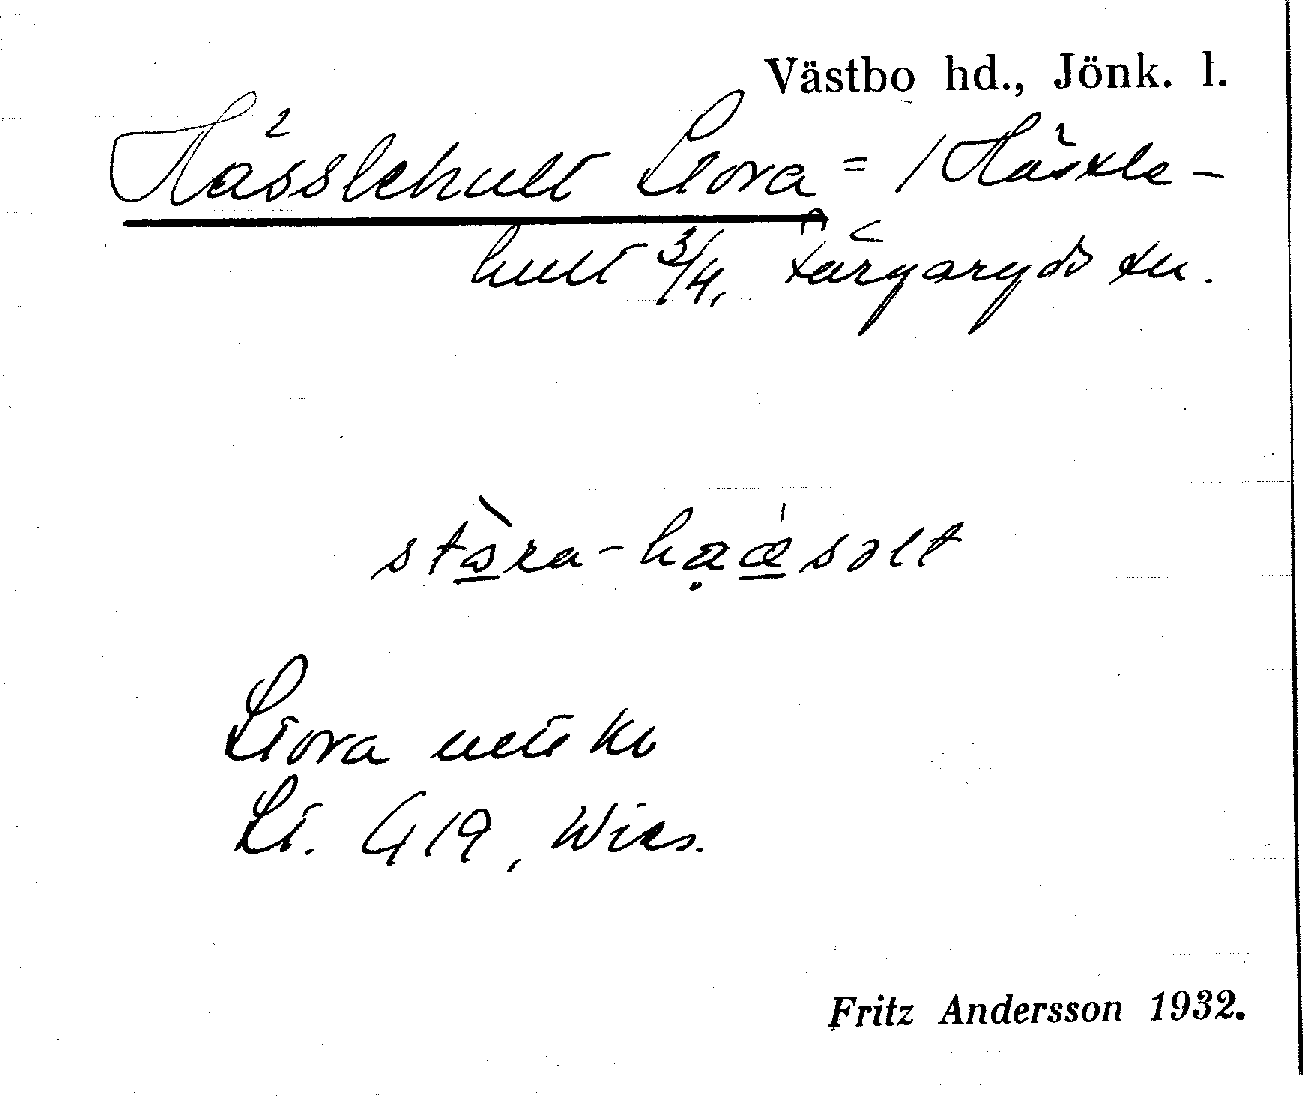 Västbo hd., Jönk. l.
Hässlehult Stora = / Hässle-
hult 3/4, Färgaryds sn.
stòra-hạæ̀səlt
Stora
St. G 19, Wies.
Fritz Andersson 1932.